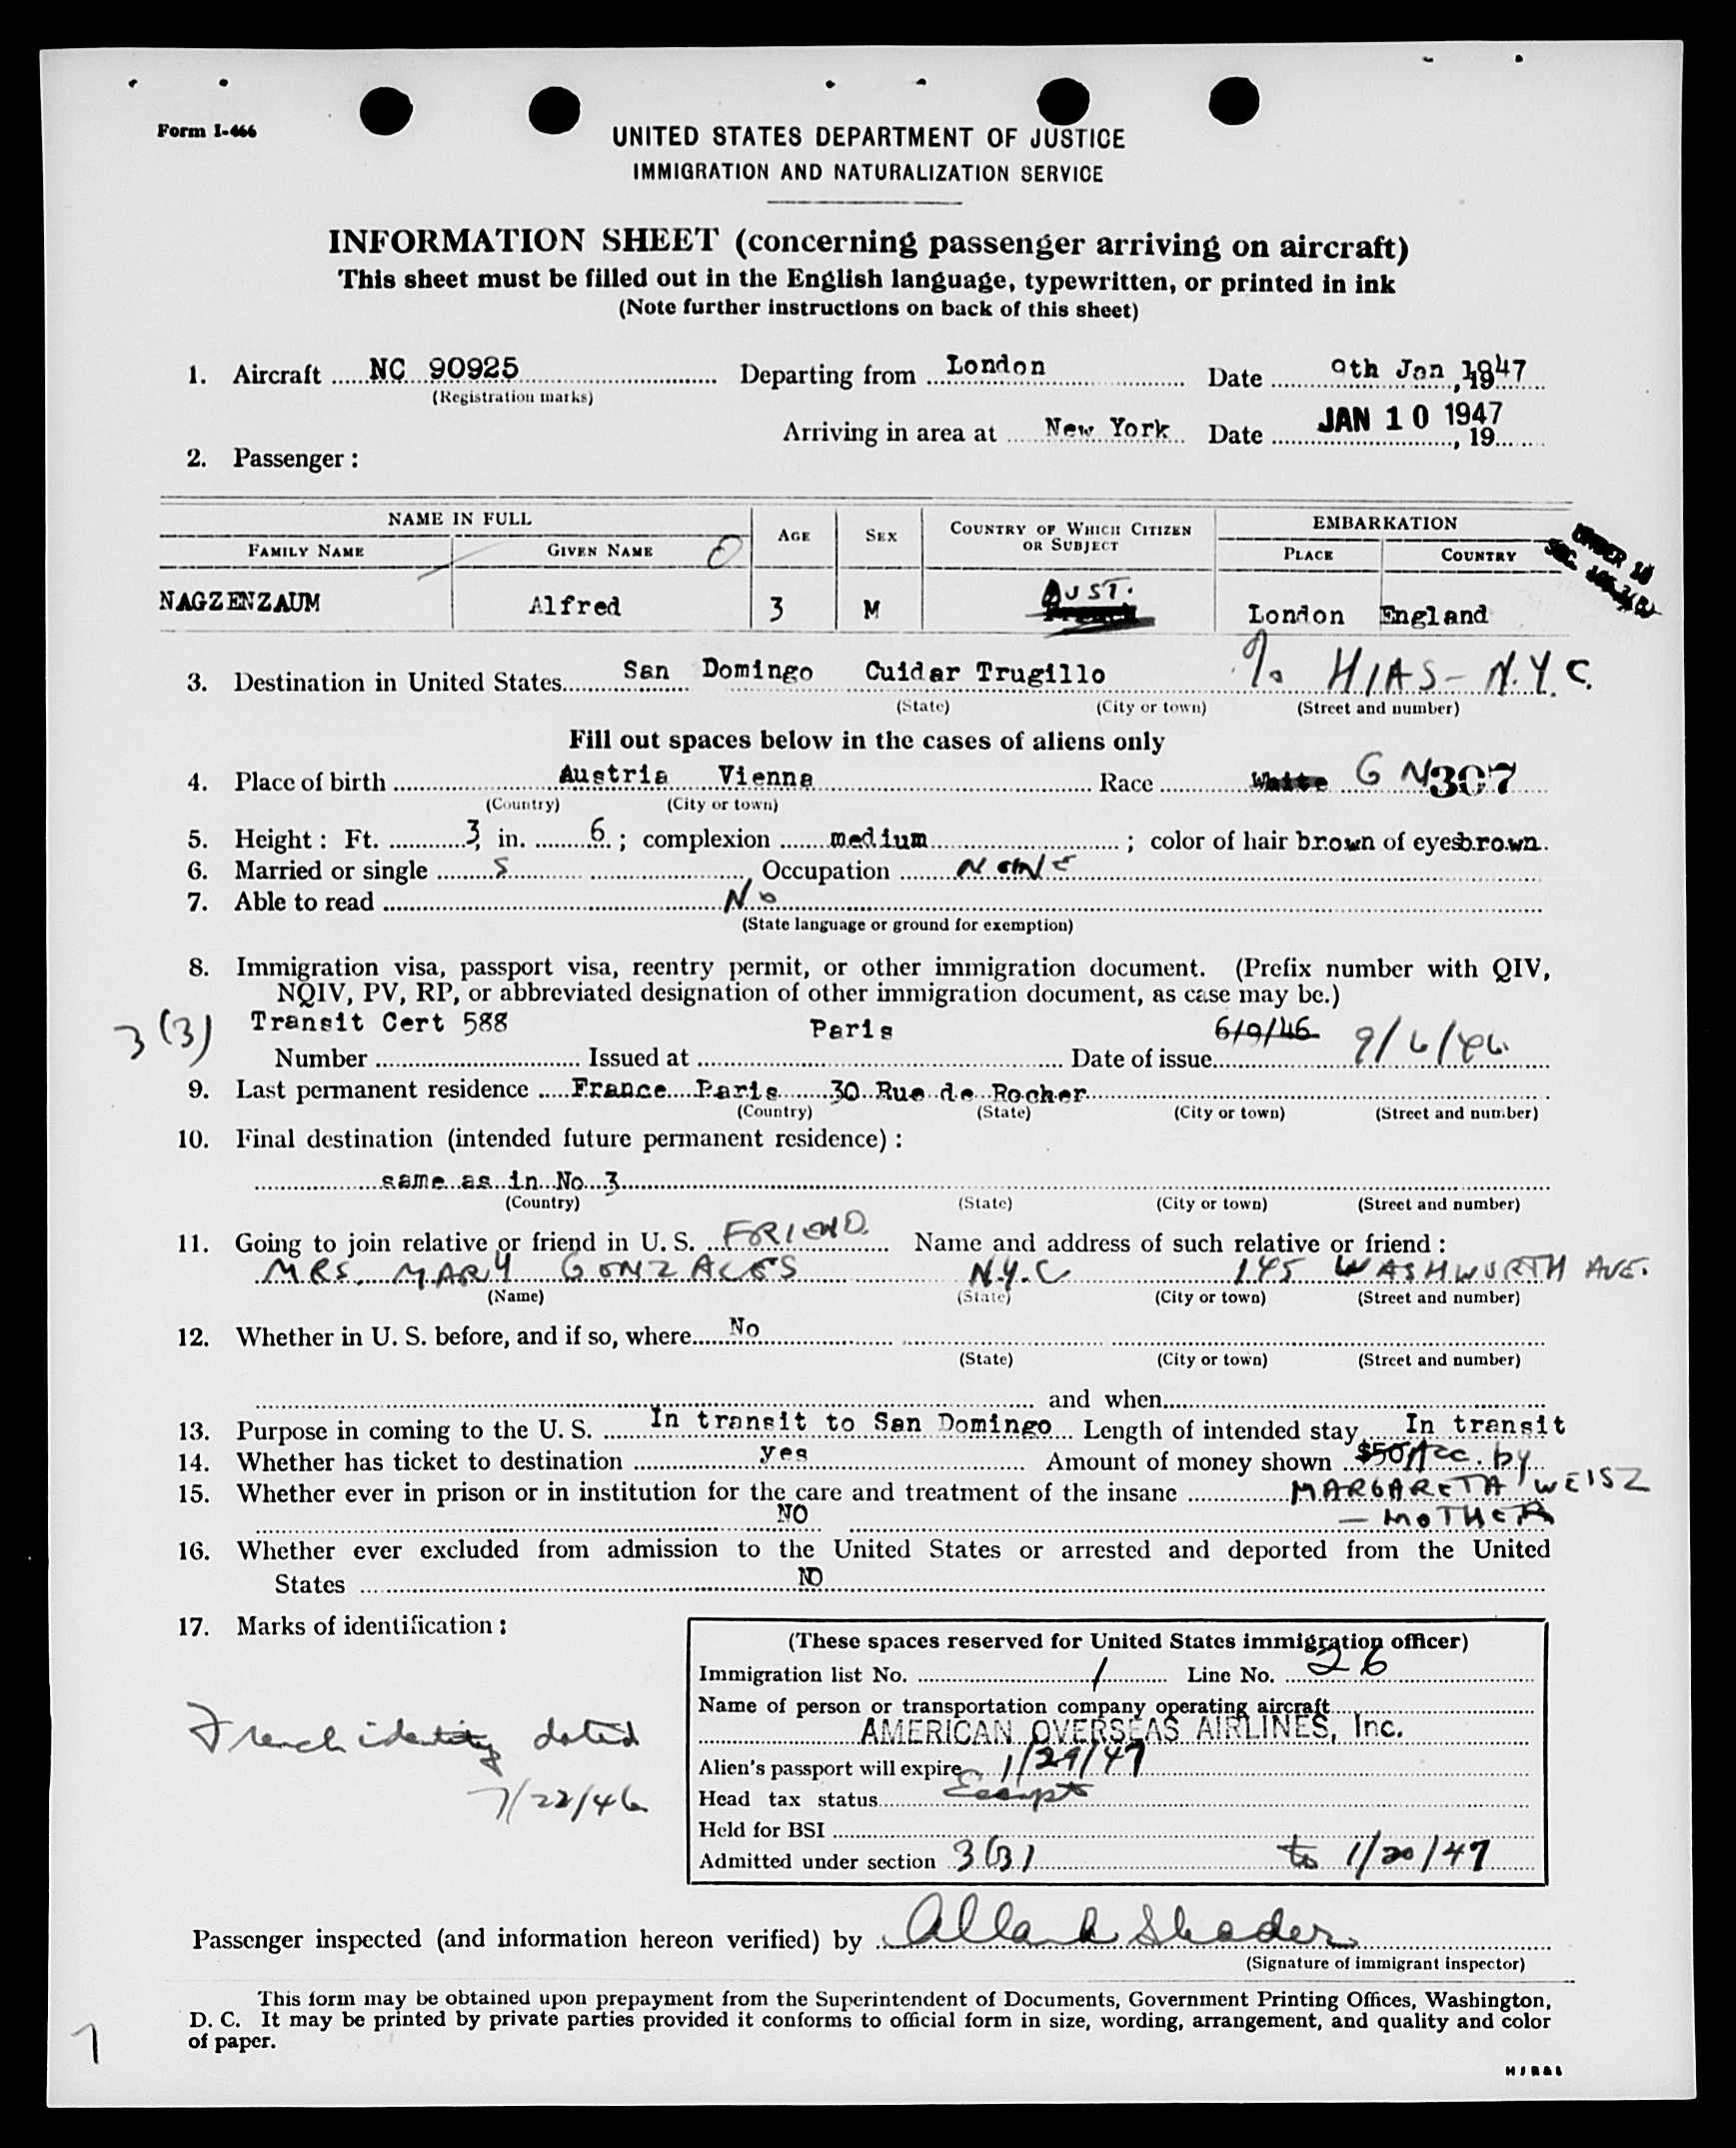 Form I-466
UNITED STATES DEPARTMENT OF JUSTICE
IMMIGRATION AND NATURALIZATION SERVICE
INFORMATION SHEET (concerning passenger arriving on aircraft)
This sheet must be filled out in the English language, typewritten, or printed in ink
(Note further instructions on back of this sheet)
1. Aircraft NC 90925 Departing from London Date 9th Jan 1947
(Registration marks)
Arriving in area at New York Date JAN 10 1947, 19
2. Passenger:
NAME IN FULL AGE SEX COUNTRY OF WHICH CITIZEN OR SUBJECT EMBARKATION
FAMILY NAME GIVEN NAME PLACE COUNTRY
UNDER 16
NAGZENZAUM Alfred 3 M AUST. London England
3. Destination in United States San Domingo Cuidar Trugillo % HIAS - N.Y.C.
(State) (City or town) (Street and number)
Fill out spaces below in the cases of aliens only
4. Place of birth Austria Vienna Race White G N 307
(Country) (City or town)
5. Height: Ft. 3, in. 6; complexion medium; color of hair brown of eyes brown.
6. Married or single S, Occupation NONE
7. Able to read No
(State language or ground for exemption)
8. Immigration visa, passport visa, reentry permit, or other immigration document. (Prefix number with QIV,
NQIV, PV, RP, or abbreviated designation of other immigration document, as case may be.)
3(3) Transit Cert 588 Paris 6/9/46 9/6/46
Number Issued at Date of issue
9. Last permanent residence France Paris 30 Rue de Rocher
(Country) (State) (City or town) (Street and number)
10. Final destination (intended future permanent residence):
same as in No 3
(Country) (State) (City or town) (Street and number)
11. Going to join relative or friend in U. S. FRIEND Name and address of such relative or friend:
MRS. MARY GONZALES N.Y.C 145 WASHWURTH AVE.
(Name) (State) (City or town) (Street and number)
12. Whether in U. S. before, and if so, where No
(State) (City or town) (Street and number)
and when
13. Purpose in coming to the U. S. In transit to San Domingo Length of intended stay In transit
14. Whether has ticket to destination yes Amount of money shown $50 Acc. by
15. Whether ever in prison or in institution for the care and treatment of the insane MARGARETA WEISZ
NO - MOTHER
16. Whether ever excluded from admission to the United States or arrested and deported from the United
States NO
17. Marks of identification:
(These spaces reserved for United States immigration officer)
Immigration list No. 1 Line No. 26
Name of person or transportation company operating aircraft
AMERICAN OVERSEAS AIRLINES, Inc.
French identity dated
7/22/46
Alien's passport will expire 1/29/47
Head tax status Exempt
Held for BSI
Admitted under section 3(3) to 1/20/47
Passenger inspected (and information hereon verified) by Allan Shader
(Signature of immigrant inspector)
This form may be obtained upon prepayment from the Superintendent of Documents, Government Printing Offices, Washington,
D. C. It may be printed by private parties provided it conforms to official form in size, wording, arrangement, and quality and color
of paper.
1